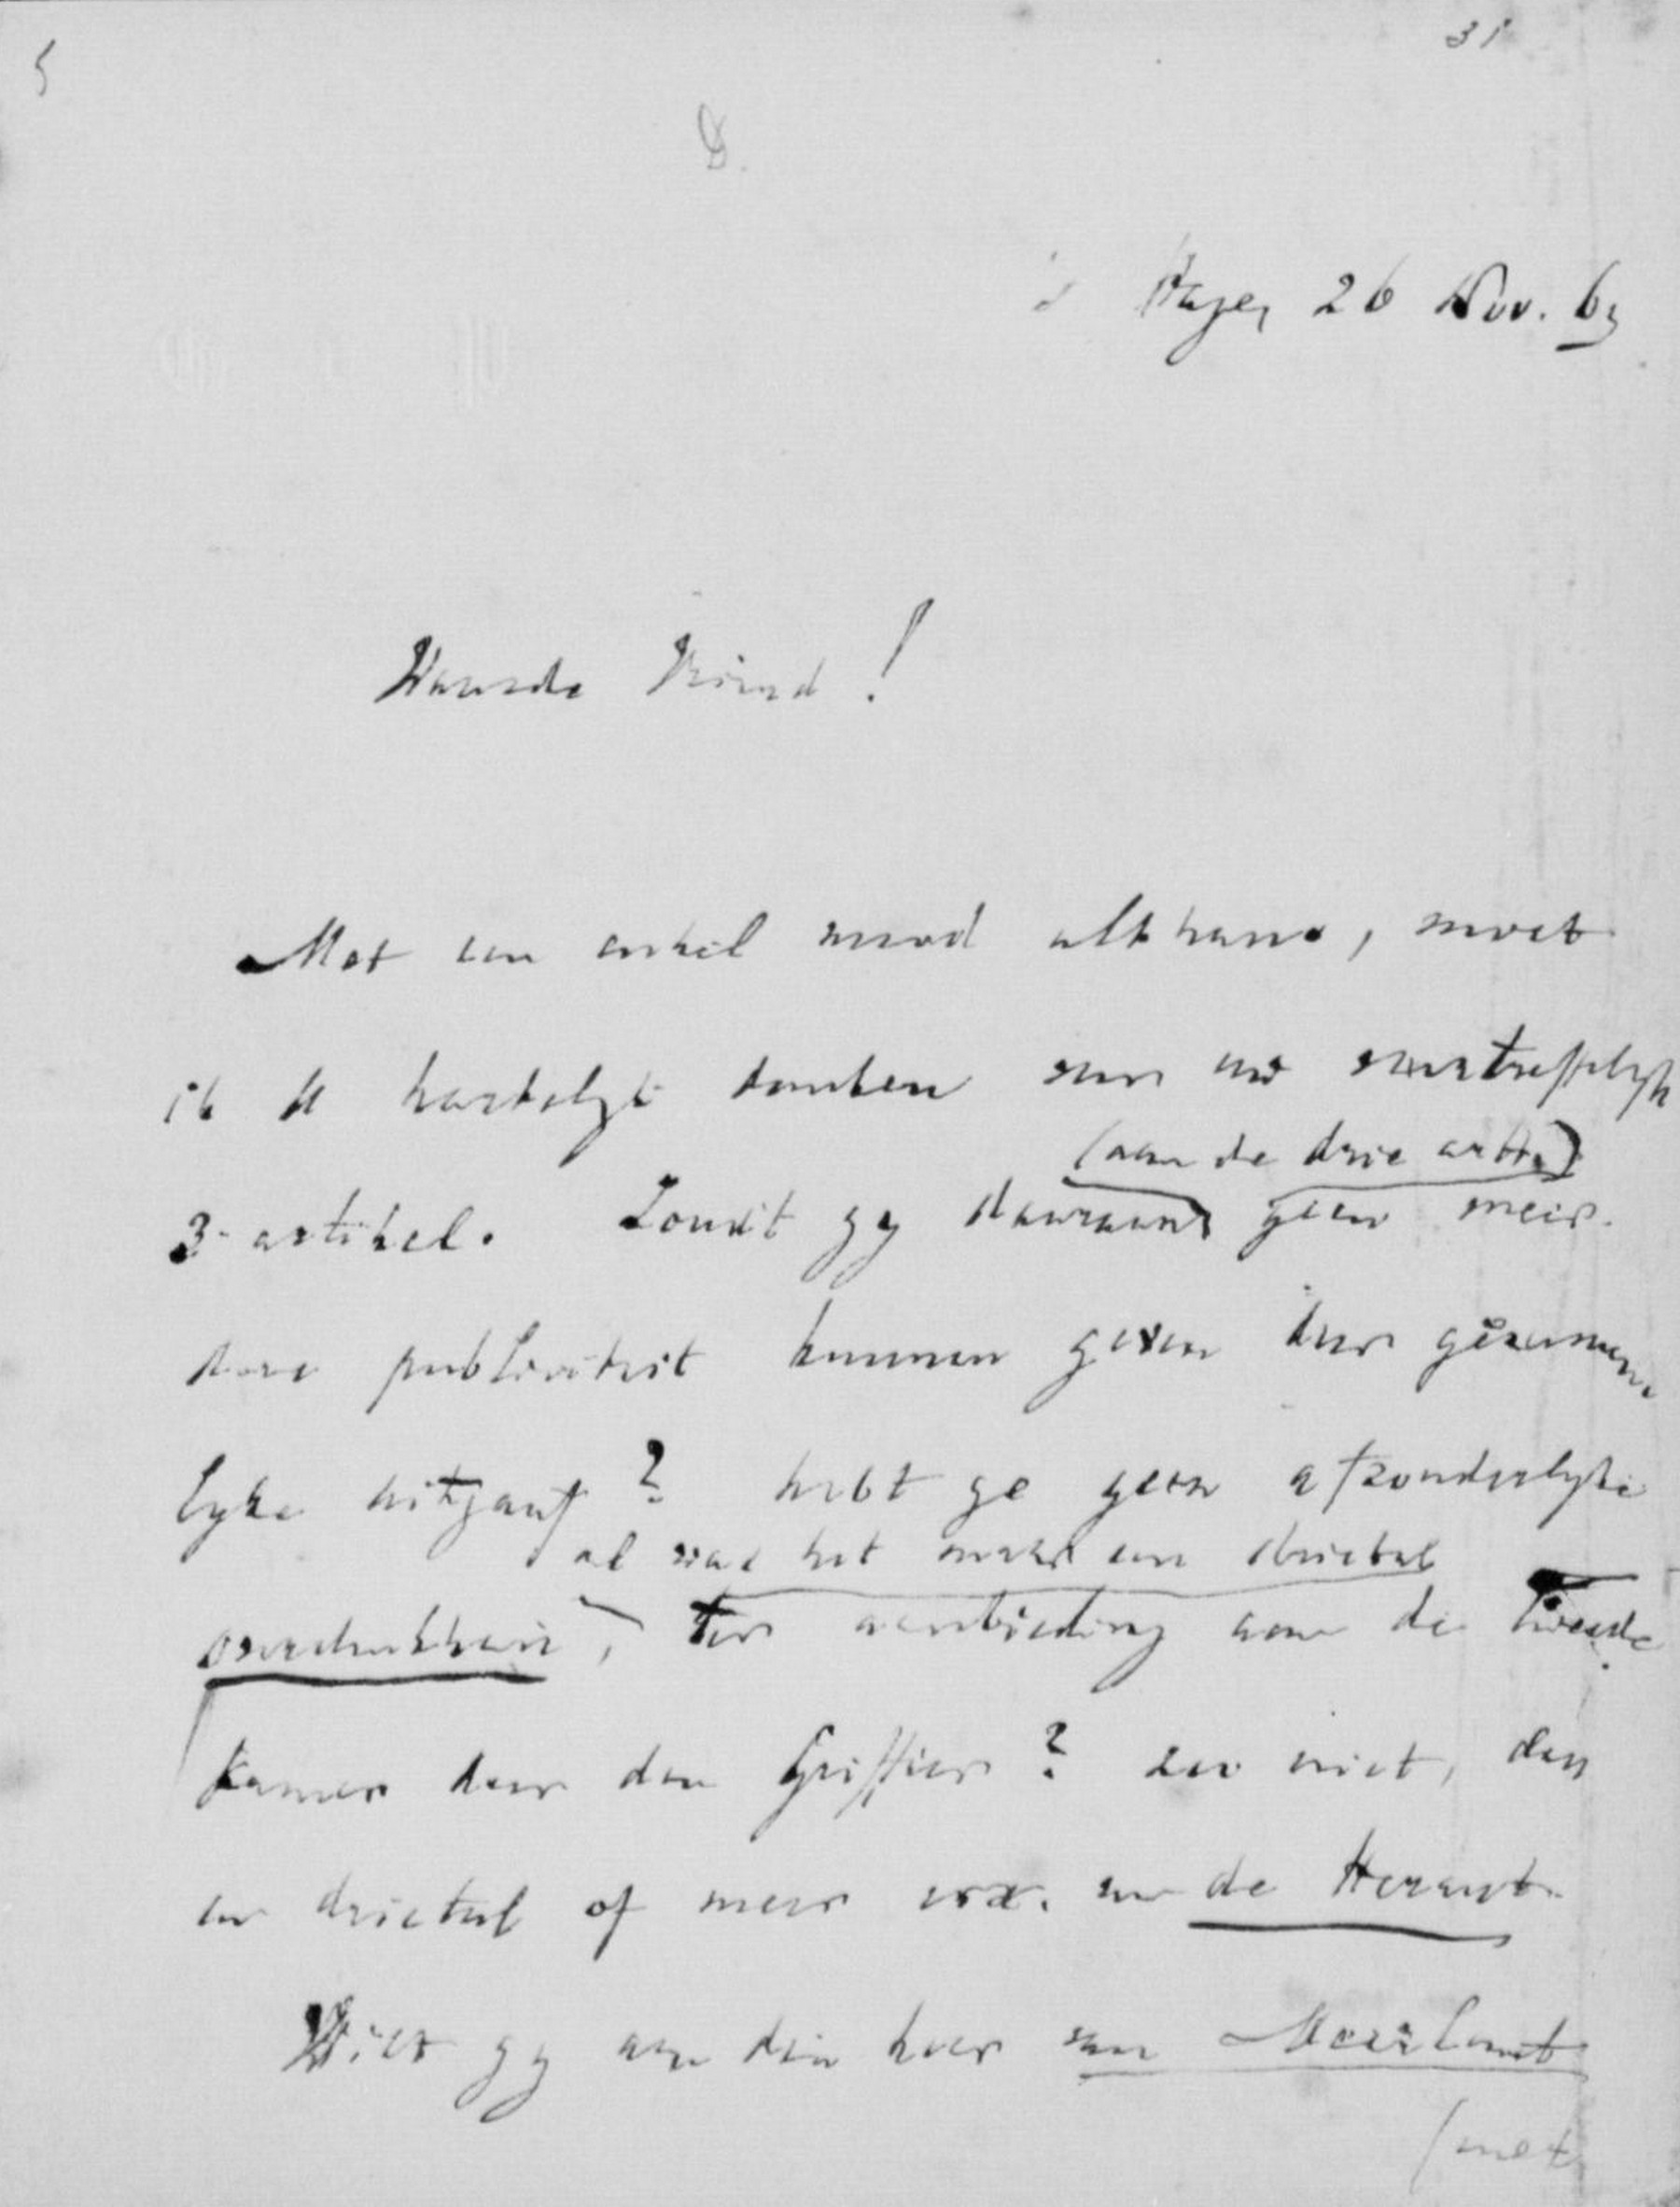 5
31
8.
's Hage, 26 Nov. 63
Waarde Vriend!
Met een enkel woord althans, moet
ik U hartelijk danken voor uw voortreffelijk
(aan de drie artt.)
3e artikel. Zoudt gy daaraan geen meer-
dere publiciteit kunnen geven door gezamen-
lyke uitgaaf? hebt ge geen afzonderlyke
al was het maar een drietal
overdrukken, ter aanbieding aan de Tweede
Kamer door den Griffier? zoo niet, dan
een drietal of meer exx. van de Heraut.
Wilt gy aan den heer van Meerlant
(met